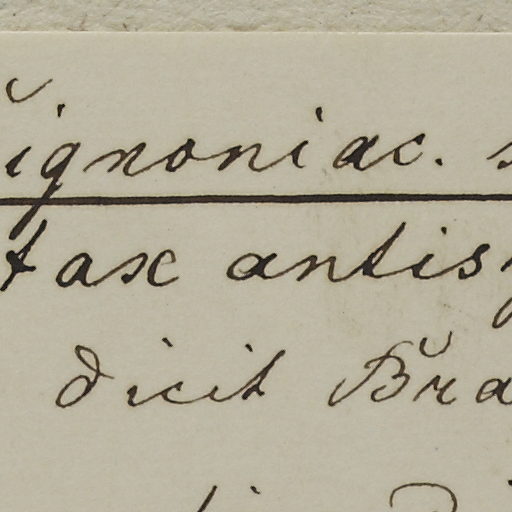 ignoniac.
tax antis
dicit Bra